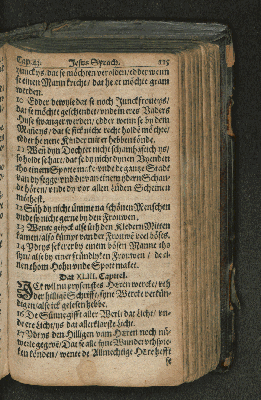 Cap.xlij. Jesus Syrach. 125
junck ys, dat se möchten verolden, edder wenn
se einen Mann krecht, dat he er möchte gram
werden.
10 Edder dewyle dat se noch Junckfrouw ys,
dat se möchte geschendet, vnde in eres Vaders
Huse swanger werden, edder wenn se by dem
Manne ys, dat se sick nicht recht holde möchte,
edder he nene Kinder mit er hebben könde.
11 Wen dyn Dochter nicht schamhafftich ys,
so holde se hart, dat se dy nicht dynen Vyenden
tho einem Spotte make, vnde de gantze Stadt
van dy segge, vnd dw van einem ydern Schan-
de hören, vnde dy vor allen Lüden Schemen
mothest.
12 Süh dy nicht ümme na schönen Menschen
vnde sy nicht gerne by den Frouwen,
13 Wente gelyck alse vth den Kledern Mütten
kamen, also kümpt van den Frouwe veel böses.
14 Ydt ys sekerer by einem bösen Manne tho
syn, alse by einer fründtlyken Frouwen, de
en tho m Hohn vnde Spott maket.
Dat XLIII. Capittel.
15 JCk wil nu prysen des HEren wercke, vth
der hilligē Schrifft, syne Wercke verkün-
digen, alse ick gelesen hebbe.
16 De Sünne gifft aller Werlt dat Licht, vn-
de ere Licht, ys dat allerklareste Licht.
17 Ydt ys den Hilligen vam HEren noch nü-
werle gegeven, Dat se alle syne Wunder vthspre-
ken könden, wente de Allmechtige HEre hefft
se